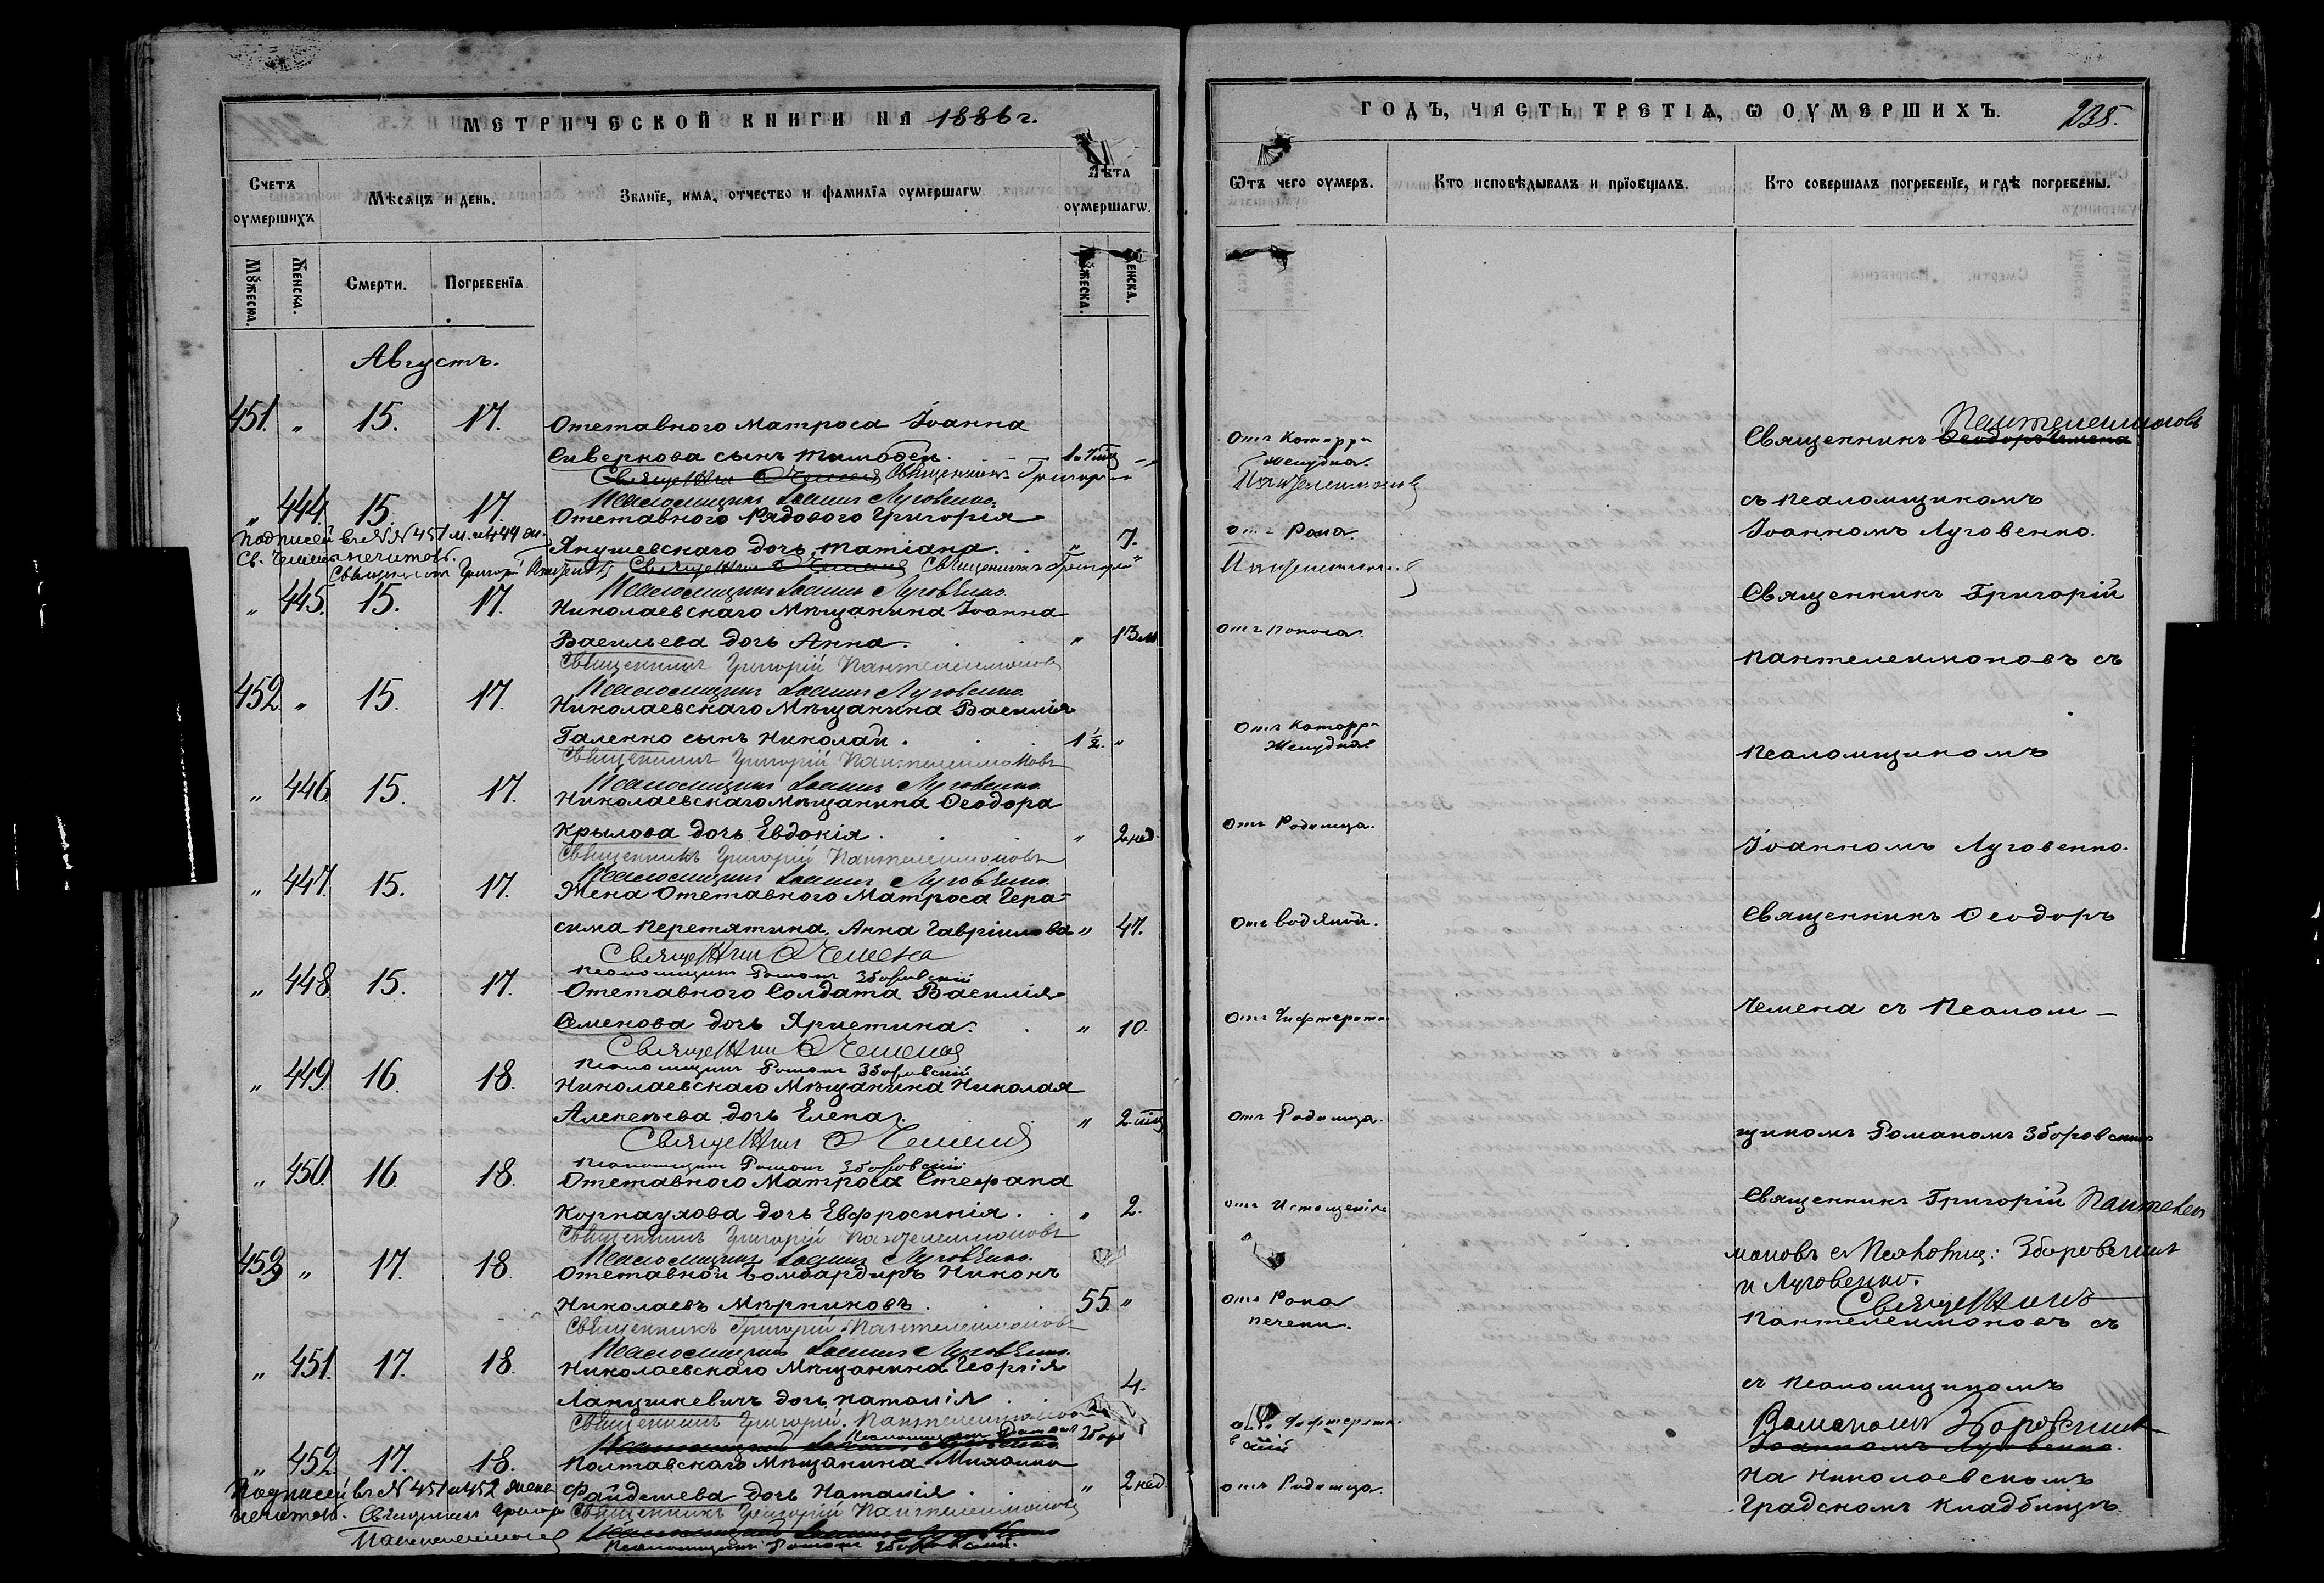 МЕТРИЧЕСКОЙ КНИГИ НА 1886 г.
Счетъ оумершихъ
Мѣсяцъ и день.
Званїе, имя, отчество и фамилїя оумершагѡ.
Лѣта оумершагѡ.
Мꙋжеска.
Женска.
Смерти.
Погребенїя.
Мꙋжеска.
Женска.
Августъ.
451. " 15. 17. Отставного Матроса Іоанна
Сиверкова сынъ Тимоѳей.
Священникъ Григорій
Псаломщикъ Іоаннъ Луговенко.
" 444. 15. 17. Отставного Рядового Григорія
Янушевскаго дочь Татіана. " 7.
Подписей въ № № 451 м. и 444 ж.
Св. Чемена нечитать.
Священникъ Григорій
Псаломщикъ Іоаннъ Луговенко
" 445. 15. 17. Николаевскаго Мѣщанина Іоанна
Васильева дочь Анна. " 13 м
Священникъ Григорій Пантелеимоновъ
Псаломщикъ Іоаннъ Луговенко.
452. " 15. 17. Николаевскаго Мѣщанина Василія
Галенко сынъ Николай. 1 ½. "
Священникъ Григорій Пантелеимоновъ
Псаломщикъ Іоаннъ Луговенко
" 446. 15. 17. Николаевскаго Мѣщанина Ѳеодора
Крылова дочь Евдокія. " 2 нед.
Священникъ Григорій Пантелеимоновъ
Псаломщикъ Іоаннъ Луговенко.
" 447. 15. 17. Жена Отставного Матроса Гера-
сима Перетятина, Анна Гавріилова " 47.
Священникъ Ѳ Чемена
Псаломщикъ Романъ Зборовскій
" 448. 15. 17. Отставного Солдата Василія
Семенова дочь Христина. " 10.
Священникъ Ѳ Чемена
Псаломщикъ Романъ Зборовскій
" 449. 16. 18. Николаевскаго Мѣщанина Николая
Алексѣева дочь Елена. " 2 мц
Священникъ Ѳ Чемена
Псаломщикъ Романъ Зборовскій
" 450. 16. 18. Отставного Матроса Стефана
Корнаухова дочь Евфросинія. " 2.
Священникъ Григорій Пантелеимоновъ
Псаломщикъ Іоаннъ Луговенко.
453. " 17. 18. Отставной Бомбардиръ Никонъ
Николаевъ Мѣрниковъ. 55. "
Священникъ Григорій Пантелеимоновъ
Псаломщикъ Іоаннъ Луговенко.
" 451. 17. 18. Николаевскаго Мѣщанина Георгія
Лапушкевичъ дочь Наталія. 4.
Священникъ Григорій Пантелеимоновъ
Псаломщикъ Романъ Збор
" 452. 17. 18. Полтавскаго Мѣщанина Михаила
Файдешева дочь Наталія. " 2 нед
Подписей въ № 451 и 452 женс
нечитать. Священникъ Григор
Пантелеимонов
Священникъ Григорій Пантелеимоновъ
Псаломщикъ Романъ Зборовскій.
ГОДЪ, ЧАСТЬ ТРЕТІѦ, Ѡ ОУМЕРШИХЪ. 235.
Ѿтъ чего оумеръ.
Кто исповѣдывалъ и прїобщалъ.
Кто совершалъ погребенїе, и гдѣ погребены.
Отъ Катарра
Желудка.
Пантелеимоновъ
отъ Рака.
Пантелеимоновъ
отъ Поноса.
Отъ Катарра
Желудка
Отъ Родимца.
Отъ водяной.
Отъ Дифтерита
Отъ Родимца.
отъ Истощенія
Отъ Рака
печени.
отъ Дифтерита.
отъ Родимца.
Пантелеимоновъ
Священникъ Ѳеодоръ Чемена
съ псаломщикомъ
Іоанномъ Луговенко.
Священникъ Григорій
Пантелеимоновъ съ
псаломщикомъ
Іоанномъ Луговенко.
Священникъ Ѳеодоръ
Чемена съ Псалом-
щикомъ Романомъ Зборовским
Священникъ Григорій Пантелеи
моновъ съ Псаломщ: Зборовскимъ
и Луговенко.
Священникъ
Пантелеимоновъ съ
съ псаломщикомъ
Романомъ Зборовскимъ
Іоанномъ Луговенко.
На Николаевскомъ
Градскомъ кладбищѣ